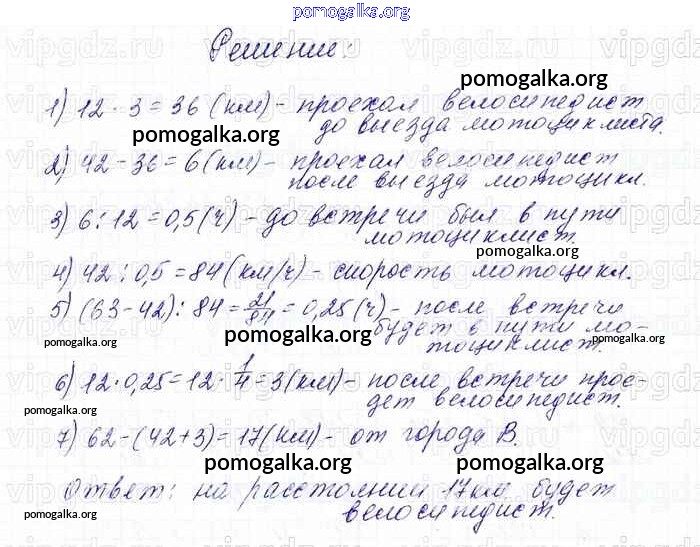 pomogalka.org
Решение:
pomogalka.org
1) 12 · 3 = 36 (км) - проехал велосипедист
до выезда мотоциклиста.
pomogalka.org
2) 42 - 36 = 6 (км) - проехал велосипедист
после выезда мотоцикл.
3) 6 : 12 = 0,5 (ч) - до встречи был в пути
мотоциклист.
pomogalka.org
4) 42 : 0,5 = 84 (км/ч) - скорость мотоцикл.
5) (63 - 42) : 84 = 21/84 = 0,25 (ч) - после встречи
будет в пути мо-
pomogalka.org
тоциклист.
pomogalka.org
pomogalka.org
6) 12 · 0,25 = 12 · 1/4 = 3 (км) - после встречи прое-
дет велосипедист.
pomogalka.org
pomogalka.org
7) 62 - (42 + 3) = 17 (км) - от города В.
pomogalka.org
pomogalka.org
Ответ: на расстоянии 17 км будет
велосипедист.
pomogalka.org
pomogalka.org